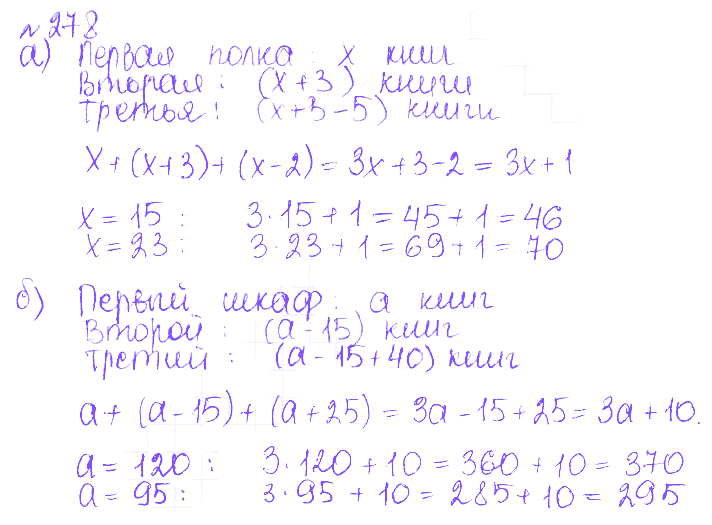 № 278
а) Первая полка : x книг
Вторая : (x+3) книги
Третья : (x+3-5) книги
x + (x+3) + (x-2) = 3x + 3 - 2 = 3x + 1
x = 15 : 3·15 + 1 = 45 + 1 = 46
x = 23 : 3·23 + 1 = 69 + 1 = 70
б) Первый шкаф : a книг
Второй : (a-15) книг
Третий : (a-15+40) книг
a + (a-15) + (a+25) = 3a - 15 + 25 = 3a + 10.
a = 120 : 3·120 + 10 = 360 + 10 = 370
a = 95 : 3·95 + 10 = 285 + 10 = 295